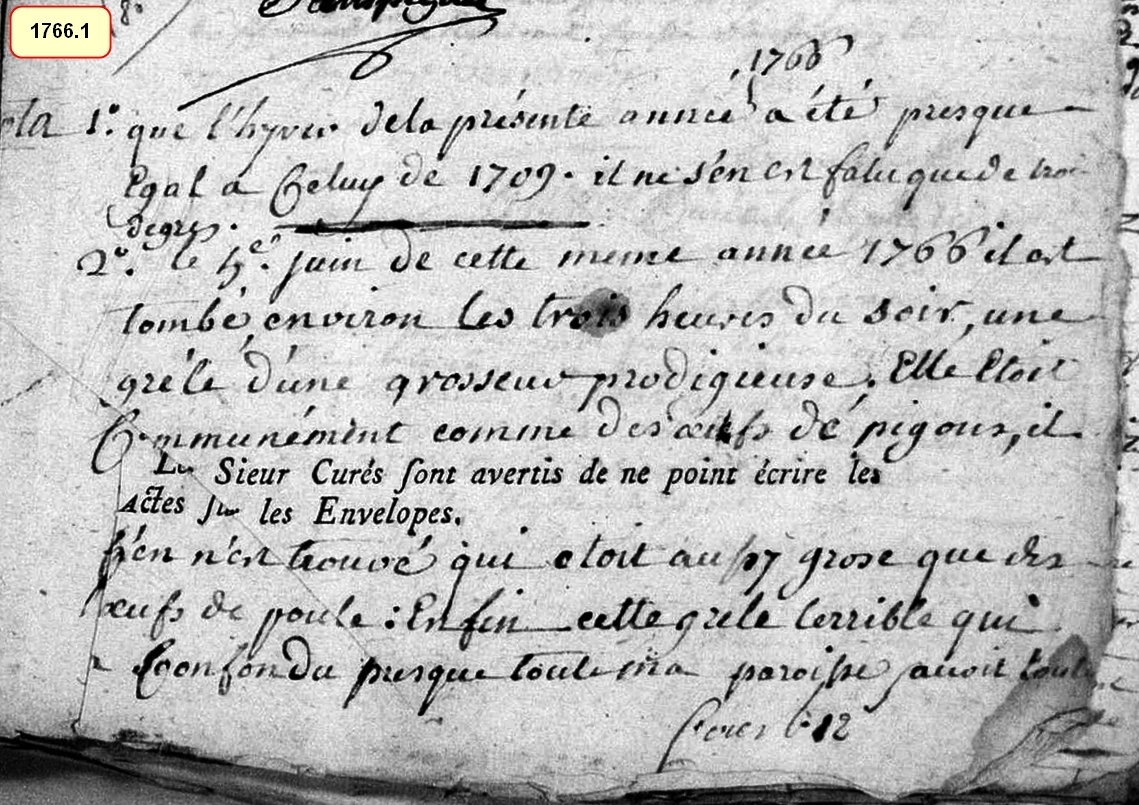 1766.1
1766
1.° que l'hyver dela présente année a été presque
Egal a Celuy de 1709. il ne s'en est falu que de troi
degres.
2.° le 5e. juin de cette meme année 1766 il est
tombé environ les trois heures du soir, une
gréle d'une grosseur prodigieuse. Elle Etoit
Communément comme des œufs de pigons, il
Les Sieur Curés ſont avertis de ne point écrire les
Actes ſur les Envelopes.
s'en n'est trouvé qui etoit aussy grose que des
œufs de poule : Enfin cette grele terrible qui
a Confondu presque toute ma paroisse avoit tout